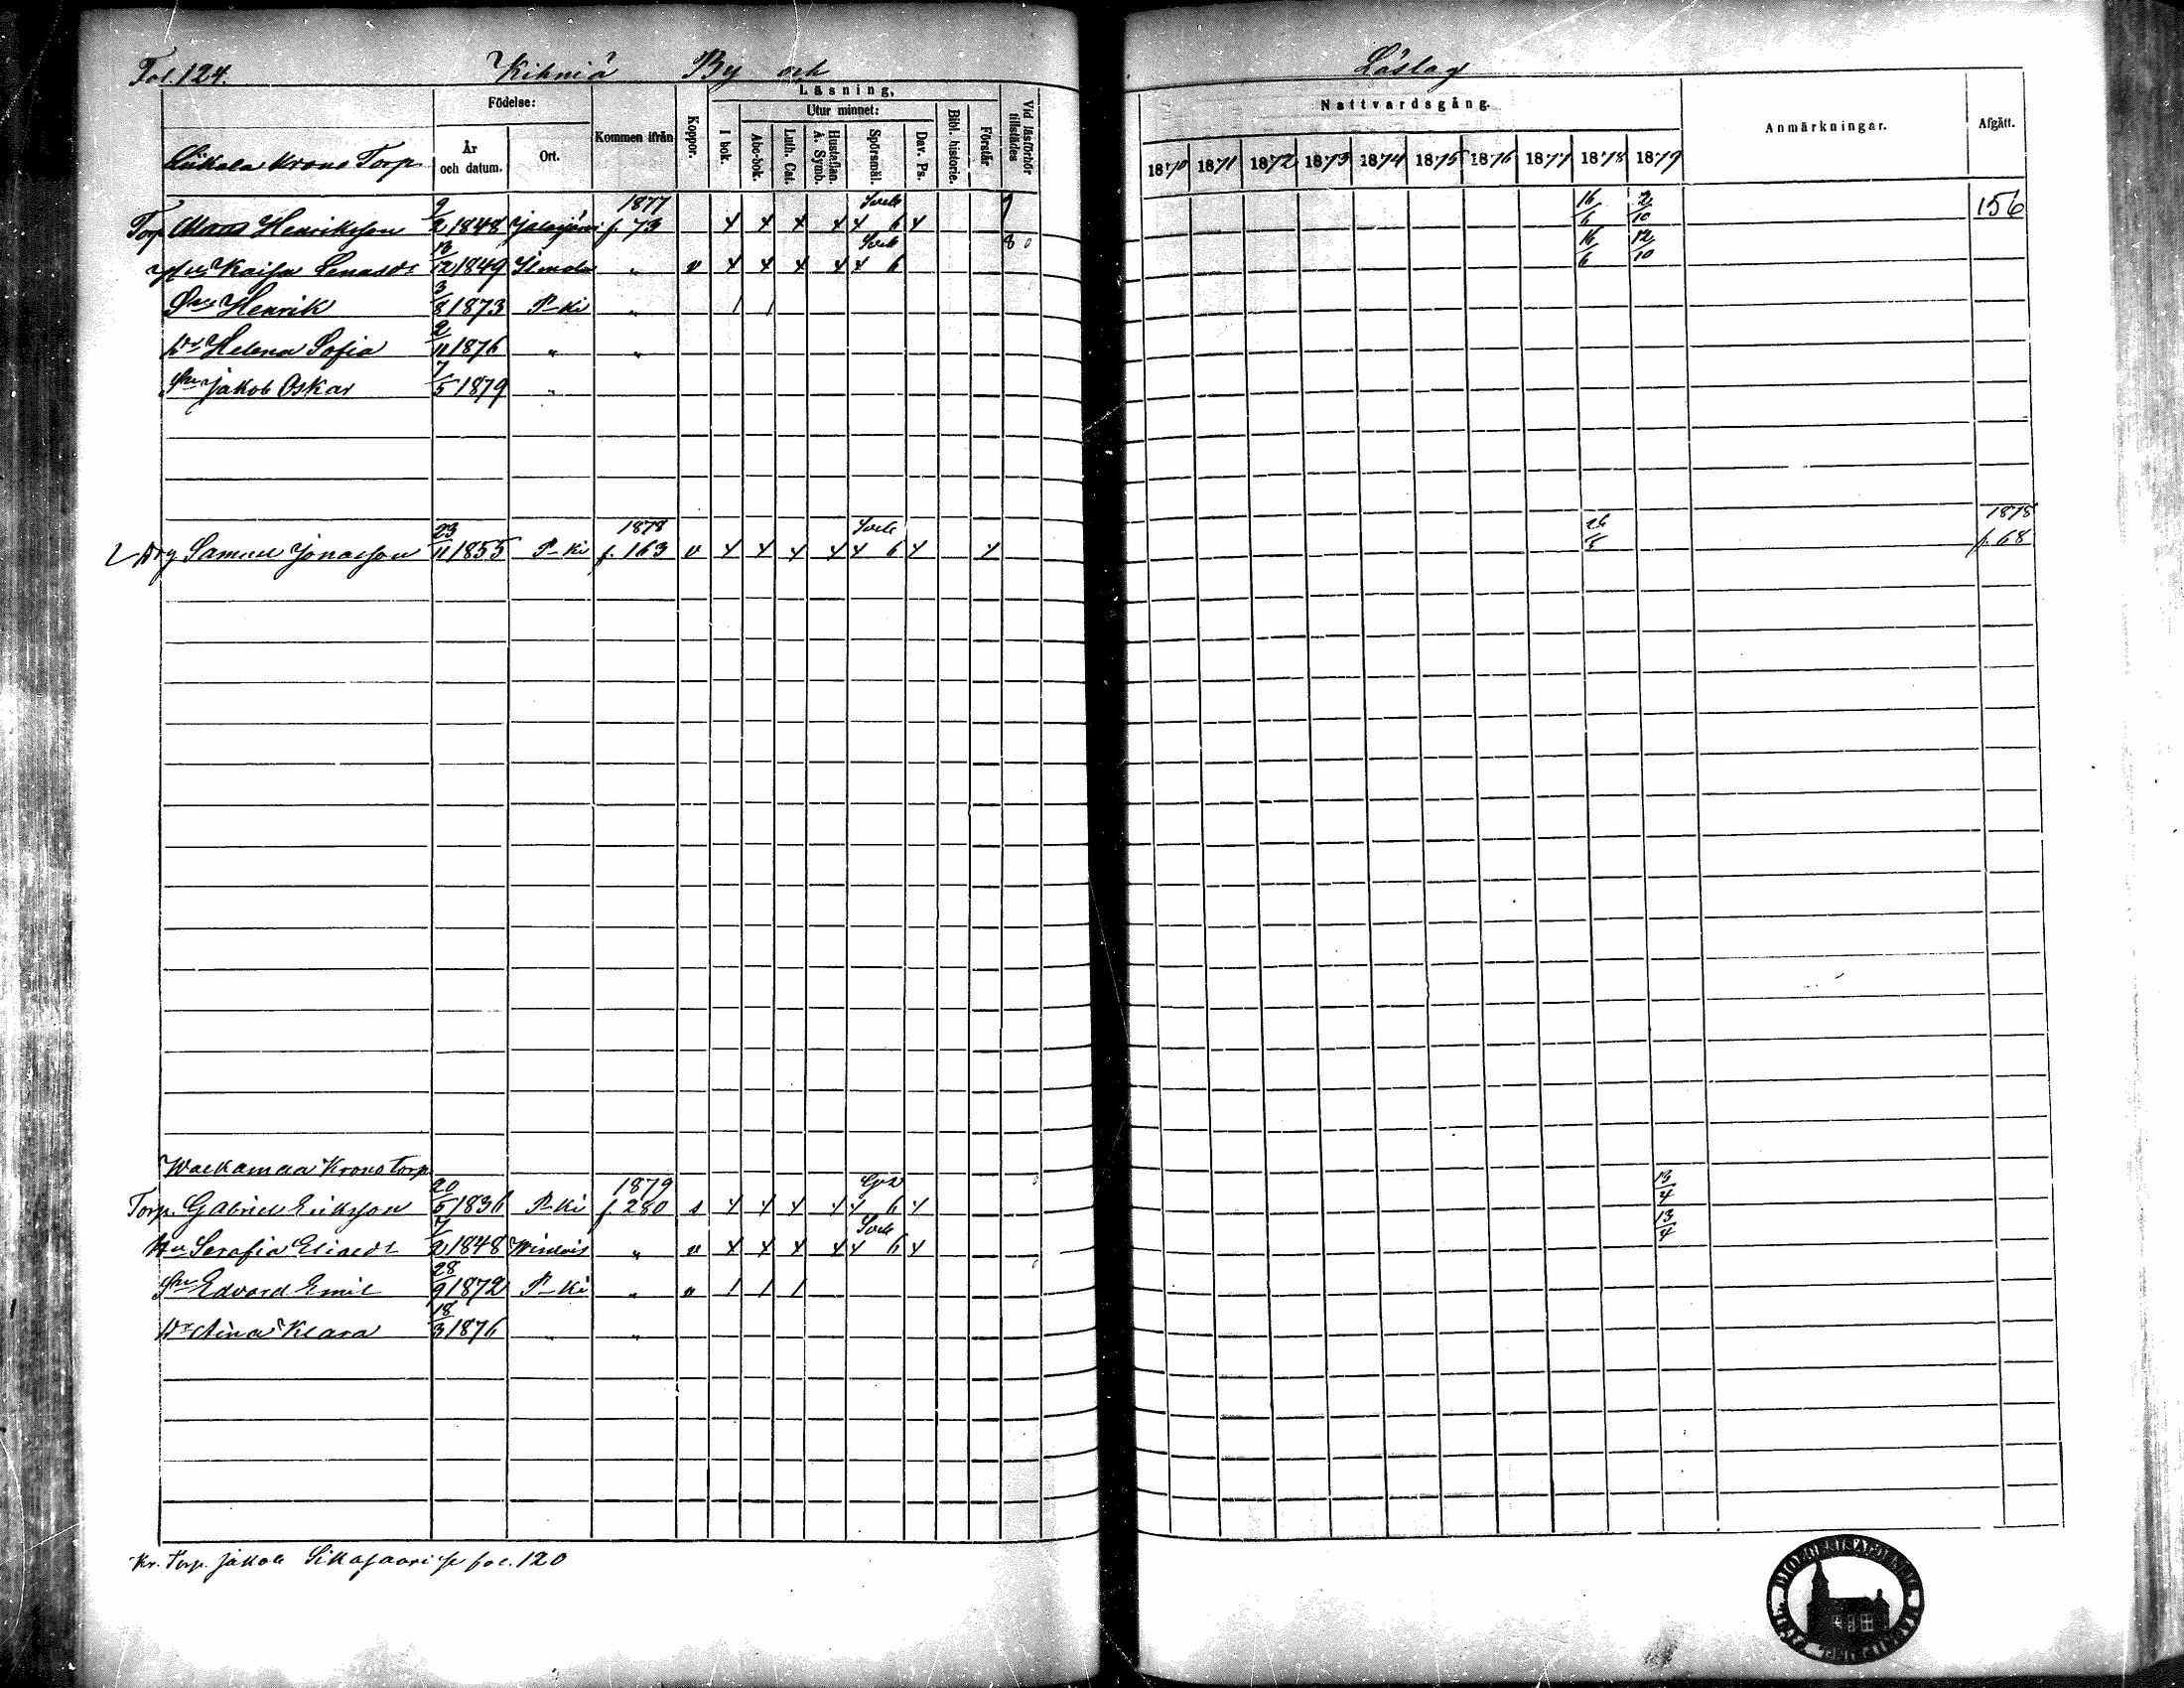 Fol. 124. Kihniä By och Läslag
Födelse: Kommen ifrån Koppor. Läsning, Vid läsförhör tillstädes Nattvardsgång. Anmärkningar. Afgått.
Utur minnet: Bibl. historie. Förstår.
År och datum. Ort. I bok. Abc-bok. Luth. Cat. Hustaflan. A. Symb. Spörsmål. Dav. Ps.
1870 1871 1872 1873 1874 1875 1876 1877 1878 1879
Krono Torp
Torp. Henriksson 9/2 1848 Jalasjärvi 1877 f. 73 4 4 4 4 4 6 4 16/6 156
Hu Kaisa 13/12 1849 Ilmola " v 4 4 4 4 4 6 8 16/6 12/10
Sn Henrik 3/8 1873 P-Ki " / /
Dr Helena Sofia 2/11 1876 " "
Sn Jakob Oskar 7/5 1879 "
Drg Samuel Jonasson 23/11 1855 P-Ki 1878 f. 163 v 4 4 4 4 4 6 4 4 1878 f. 68
Krono torp
Torp. Gabriel Eriksson 20/5 1836 P-Ki 1879 f 280 s 4 4 4 4 4 6 4 13/4
Hu Serafia Eliaedr 7/2 1848 " v 4 4 4 4 4 6 4 13/4
Sn Edvard Emil 28/9 1872 P-Ki " v / / /
Dr Aina Klara 18/3 1876 " "
Kr. Torp. Jakob fol. 120